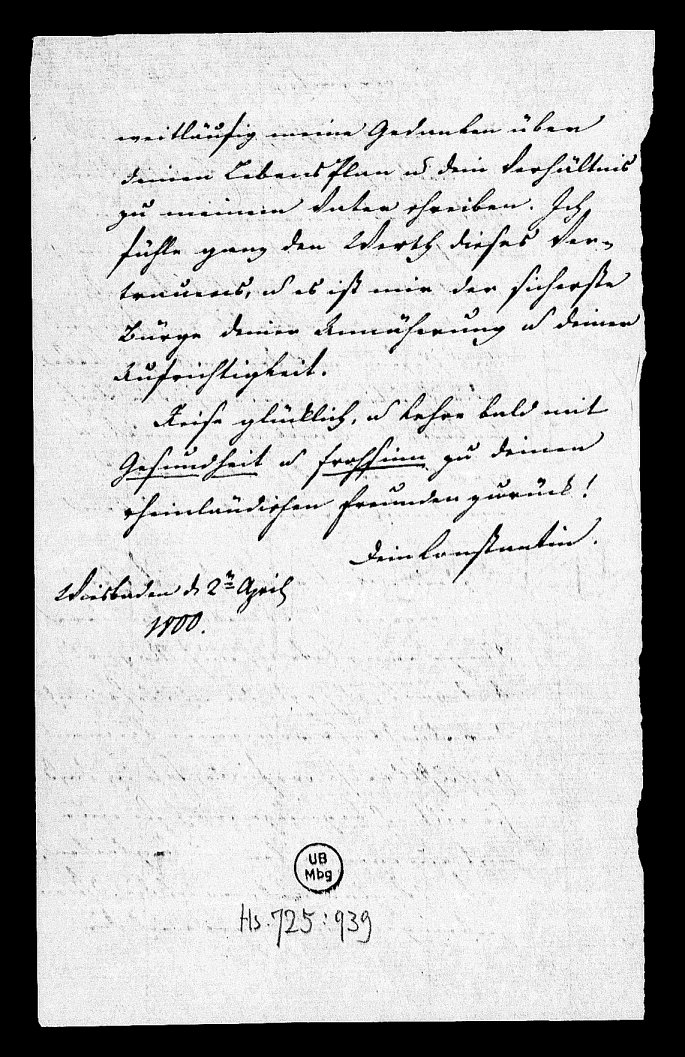 weitläufig meine Gedanken über
deinen Lebensplan u dein Verhältnis
zu meinem Vater schreiben. Ich
fühle ganz den Werth dieses Ver-
trauens, u es ist mir der sicherste
Bürge deiner Annäherung u deiner
Aufrichtigkeit.
Reise glücklich, u kehre bald mit
Gesundheit u Frohsinn zu deinen
rheinländischen Freunden zurück!
Dein Constantin.
Wiesbaden d 2n April
1800.
UB
Mbg
Hs. 725:939